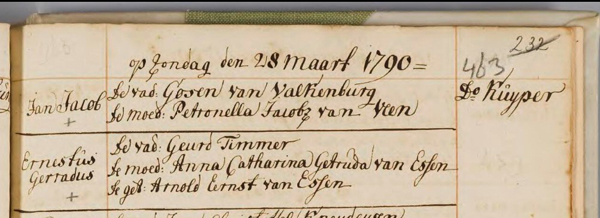 232
463
op Zondag den 28 maart 1790 =
Jan Jacob
de vad: Gosen van Valkenburg
de moed: Petronella Jacobz van Veen
Do Kuyper
+
Ernestus
Gerradus
de vad: Geurd Timmer
de moed: Anna Catharina Getruda van Essen
de get: Arnold Ernst van Essen
+